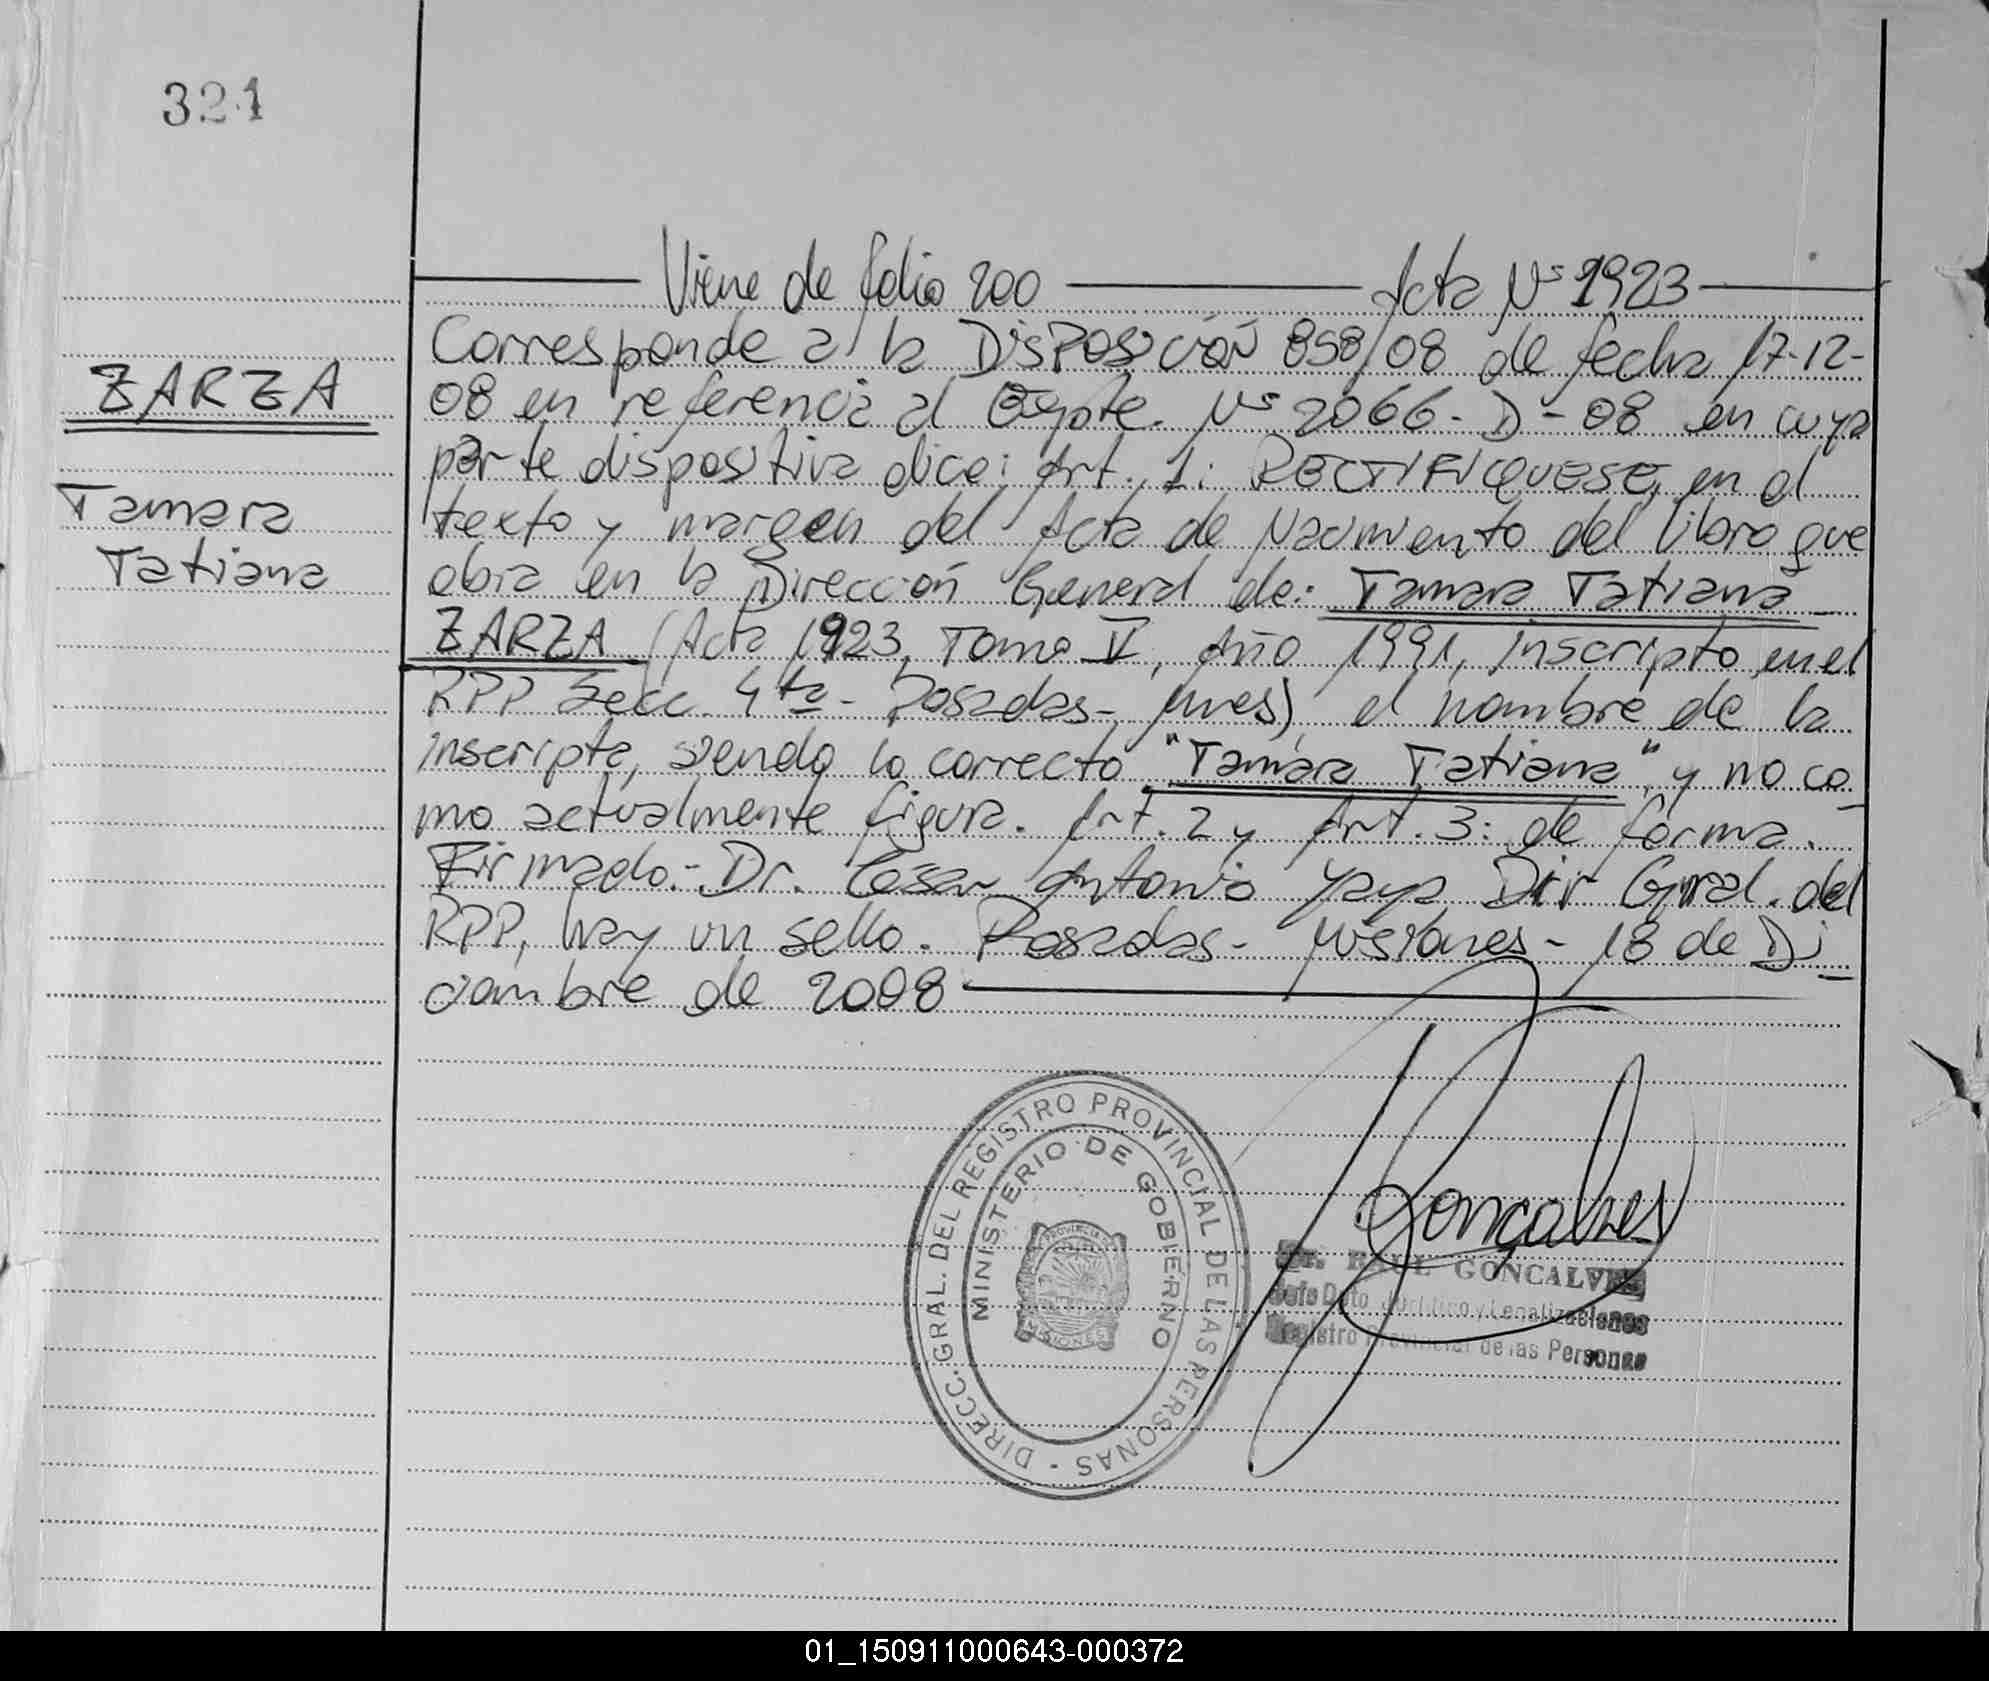 321
Viene de folio 200 Acta Nº 1923
Corresponde a la Disposición 858/08 de fecha 17-12-
08 en referencia al Expte. Nº 2066-D-08 en cuya
parte dispositiva dice: Art. 1: RECTIFIQUESE, en el
texto y margen del Acta de Nacimiento del libro que
obra en la Dirección General de: Tamara Tatiana
ZARZA (Acta 1923, Tomo V, Año 1991, inscripto en el
RPP Secc. 4ta - Posadas, Mnes) el nombre de la
inscripta, siendo lo correcto "Tamara Tatiana" y no co
mo actualmente figura. Art. 2 y Art. 3: de forma.
Firmado.- Dr. César Antonio Yaya Dir Gral. del
RPP, hay un sello. Posadas - Misiones - 18 de Di
ciembre de 2008
ZARZA
Tamara
Tatiana
DIRECC. GRAL. DEL REGISTRO PROVINCIAL DE LAS PERSONAS -
MINISTERIO DE GOBIERNO
PROVINCIA
MISIONES
Gonçalves
Dr. RAUL GONCALVES
Jefe Dpto Jurídico y Legalizaciones
Registro Provincial de las Personas
01_150911000643-000372